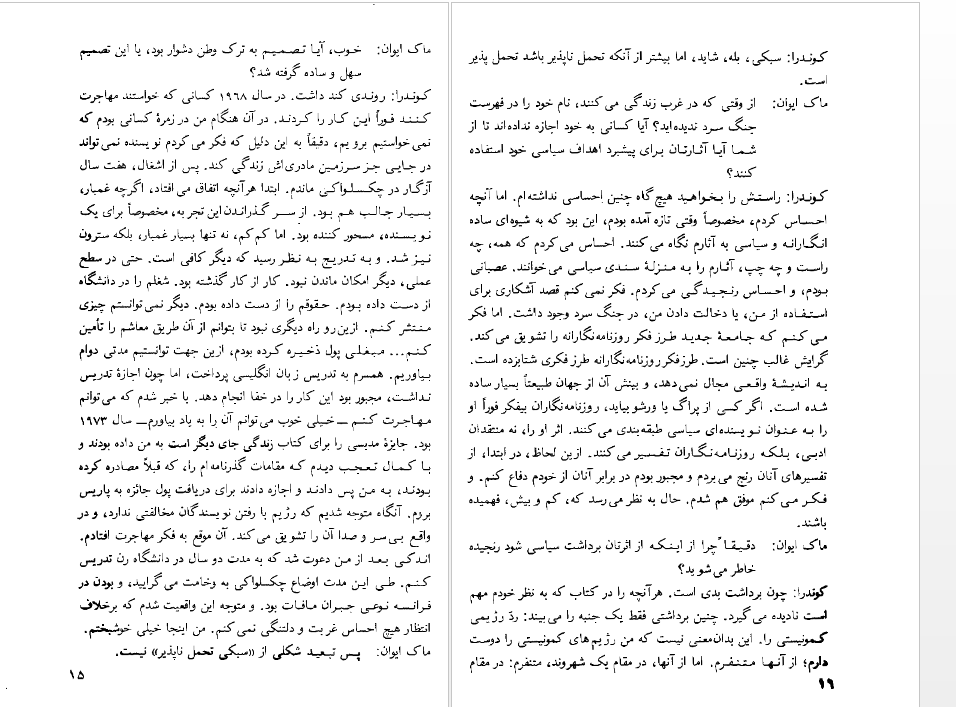 ماک ایوان: خوب، آیا تصمیم به ترک وطن دشوار بود، یا این تصمیم
سهل و ساده گرفته شد؟
کوندرا: روندی کند داشت. در سال ۱۹۶۸ کسانی که خواستند مهاجرت
کنند فوراً این کار را کردند. در آن هنگام من در زمرهٔ کسانی بودم که
نمی‌خواستیم برویم، دقیقاً به این دلیل که فکر می‌کردم نویسنده نمی‌تواند
در جایی جز سرزمین مادری‌اش زندگی کند. پس از اشغال، هفت سال
آزگار در چکسلواکی ماندم. ابتدا هرآنچه اتفاق می‌افتاد، اگرچه غمبار،
بسیار جالب هم بود. از سر گذراندن این تجربه، مخصوصاً برای یک
نویسنده، مسحور کننده بود. اما کم‌کم، نه تنها بسیار غمبار، بلکه سترون
نیز شد. و به تدریج به نظر رسید که دیگر کافی است. حتی در سطح
عملی، دیگر امکان ماندن نبود. کار از کار گذشته بود. شغلم را در دانشگاه
از دست داده بودم. حقوقم را از دست داده بودم. دیگر نمی‌توانستم چیزی
منتشر کنم. ازین‌رو راه دیگری نبود تا بتوانم از آن طریق معاشم را تأمین
کنم... مبغلی پول ذخیره کرده بودم، ازین جهت توانستیم مدتی دوام
بیاوریم. همسرم به تدریس زبان انگلیسی پرداخت، اما چون اجازهٔ تدریس
نداشت، مجبور بود این کار را در خفا انجام دهد. با خبر شدم که می‌توانم
مهاجرت کنم ــ خیلی خوب می‌توانم آن را به یاد بیاورم ــ سال ۱۹۷۳
بود. جایزهٔ مدیسی را برای کتاب زندگی جای دیگر است به من داده بودند و
با کمال تعجب دیدم که مقامات گذرنامه‌ام را، که قبلاً مصادره کرده
بودند، به من پس دادند و اجازه دادند برای دریافت پول جائزه به پاریس
بروم. آنگاه متوجه شدیم که رژیم با رفتن نویسندگان مخالفتی ندارد، و در
واقع بی‌سر و صدا آن را تشویق می‌کند. آن موقع به فکر مهاجرت افتادم.
اندکی بعد از من دعوت شد که به مدت دو سال در دانشگاه رن تدریس
کنم. طی این مدت اوضاع چکسلواکی به وخامت می‌گرایید، و بودن در
فرانسه نوعی جبران مافات بود. و متوجه این واقعیت شدم که برخلاف
انتظار هیچ احساس غربت و دلتنگی نمی‌کنم. من اینجا خیلی خوشبختم.
ماک ایوان: پس تبعید شکلی از «سبکی تحمل ناپذیر» نیست.
۱۵
کوندرا: سبکی، بله، شاید، اما بیشتر از آنکه تحمل ناپذیر باشد تحمل پذیر
است.
ماک ایوان: از وقتی که در غرب زندگی می‌کنند، نام خود را در فهرست
جنگ سرد ندیده‌اید؟ آیا کسانی به خود اجازه نداده‌اند تا از
شما آیا آثارتان برای پیشبرد اهداف سیاسی خود استفاده
کنند؟
کوندرا: راستش را بخواهید هیچ‌گاه چنین احساسی نداشته‌ام. اما آنچه
احساس کردم، مخصوصاً وقتی تازه آمده بودم، این بود که به شیوه‌ای ساده
انگارانه و سیاسی به آثارم نگاه می‌کنند. احساس می‌کردم که همه، چه
راست و چه چپ، آثارم را به منزلهٔ سندی سیاسی می‌خوانند. عصبانی
بودم، و احساس رنجیدگی می‌کردم. فکر نمی‌کنم قصد آشکاری برای
استفاده از من، یا دخالت دادن من، در جنگ سرد وجود داشت. اما فکر
می‌کنم که جامعهٔ جدید طرز فکر روزنامه‌نگارانه را تشویق می‌کند.
گرایش غالب چنین است. طرزفکر روزنامه‌نگارانه طرز فکری شتابزده است.
به اندیشهٔ واقعی مجال نمی‌دهد، و بینش آن از جهان طبیعتاً بسیار ساده
شده است. اگر کسی از پراگ یا ورشو بیاید، روزنامه‌نگاران بیفکر فوراً او
را به عنوان نویسنده‌ای سیاسی طبقه‌بندی می‌کنند. اثر او را، نه منتقدان
ادبی، بلکه روزنامه‌نگاران تفسیر می‌کنند. ازین لحاظ، در ابتدا، از
تفسیرهای آنان رنج می‌بردم و مجبور بودم در برابر آنان از خودم دفاع کنم. و
فکر می‌کنم موفق هم شدم. حال به نظر می‌رسد که، کم و بیش، فهمیده
باشند.
ماک ایوان: دقیقاً چرا از اینکه از اثرتان برداشت سیاسی شود رنجیده
خاطر می‌شوید؟
کوندرا: چون برداشت بدی است. هرآنچه را در کتاب که به نظر خودم مهم
است نادیده می‌گیرد. چنین برداشتی فقط یک جنبه را می‌بیند: ردّ رژیمی
کمونیستی را. این بدان‌معنی نیست که من رژیم‌های کمونیستی را دوست
دارم؛ از آنها متنفرم. اما از آنها، در مقام یک شهروند، متنفرم: در مقام
۱۶